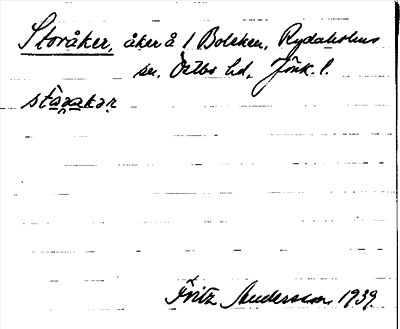 Storåker, åker å 1 Bolaken, Rydaholms
sn. Östbo hd. Jönk. l.
Fritz Andersson 1939.